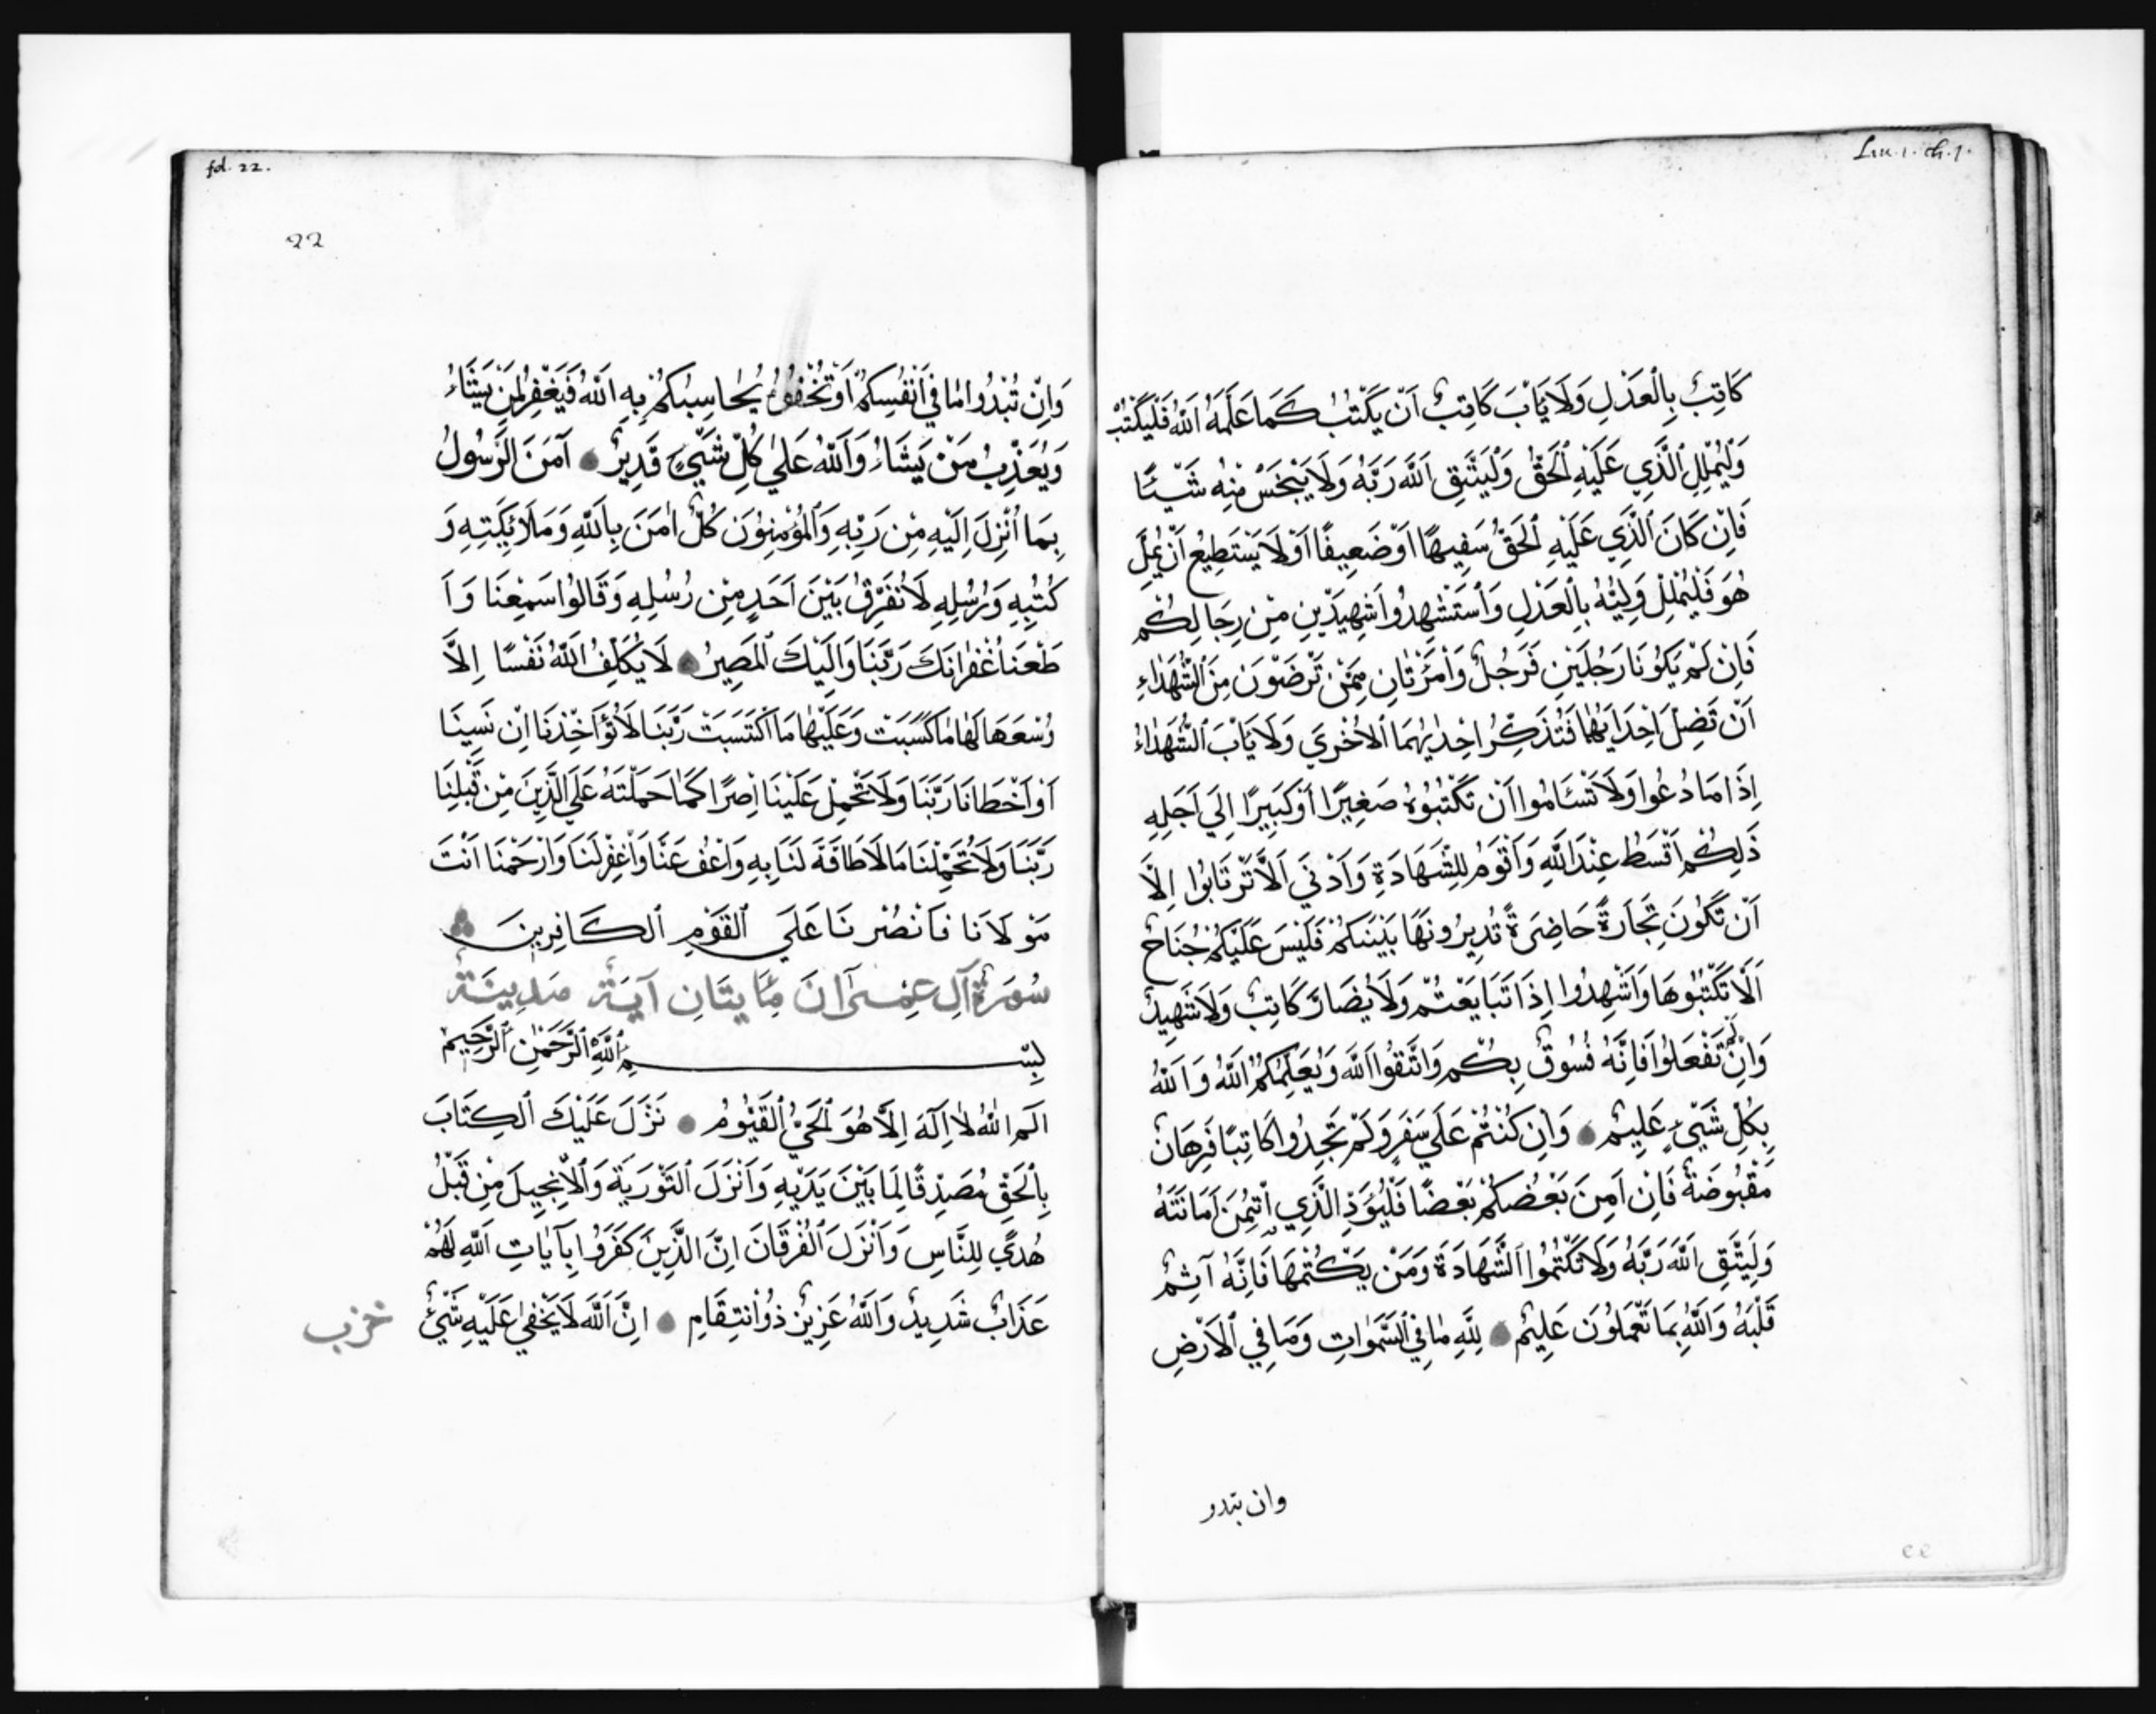 Lin. 1. ch. 1.
كَاتِبٌ بِالْعَدْلِ وَلَا يَأْبَ كَاتِبٌ اَنْ يَكْتُبَ كَمَا عَلَّمَهُ اَللّٰهُ فَلْيَكْتُبْ
وَلْيُمْلِلِ الَّذِي عَلَيْهِ اَلْحَقُّ وَلْيَتَّقِ اَللّٰهَ رَبَّهُ وَلَا يَبْخَسْ مِنْهُ شَيْئًا
فَاِنْ كَانَ الَّذِي عَلَيْهِ اَلْحَقُّ سَفِيهًا اَوْ ضَعِيفًا اَوْ لَا يَسْتَطِيعُ اَنْ يُمِلَّ
هُوَ فَلْيُمْلِلْ وَلِيُّهُ بِالْعَدْلِ وَاَسْتَشْهِدُوا شَهِيدَيْنِ مِنْ رِجَالِكُمْ
فَاِنْ لَمْ يَكُونَا رَجُلَيْنِ فَرَجُلٌ وَاَمْرَتَانِ مِمَّنْ تَرْضَوْنَ مِنَ اَلشُّهَدَاءِ
اَنْ تَضِلَّ اِحْدَايهُمَا فَتُذَكِّرَ اِحْدٰيهُمَا اَلْاُخْرَي وَلَا يَابَ اَلشُّهَدَاءُ
اِذَا مَا دُعُوا وَلَا تَسْئَامُوا اَنْ تَكْتُبُوهُ صَغِيرًا اَوْ كَبِيرًا اِلَي اَجَلِهِ
ذَلِكُمْ اَقْسَطُ عِنْدَ اَللّٰهِ وَاَقْوَمُ لِلشَّهَادَةِ وَاَدْنَي اَلَّا تَرْتَابُوا اِلَّا
اَنْ تَكُونَ تِجَارَةً حَاضِرَةً تُدِيرُونَهَا بَيْنَكُمْ فَلَيْسَ عَلَيْكُمْ جُنَاحٌ
اَلَّا تَكْتُبُوهَا وَاَشْهِدُوا اِذَا تَبَايَعْتُمْ وَلَا يُضَارَّ كَاتِبٌ وَلَا شَهِيدٌ
وَاِنْ تَفْعَلُوا فَاِنَّهُ فُسُوقٌ بِكُمْ وَاتَّقُوا اَللّٰهَ وَيُعَلِّمُكُمُ اَللّٰهُ وَاَللّٰهُ
بِكُلِّ شَيْيءٍ عَلِيمٌ وَاِنْ كُنْتُمْ عَلَي سَفَرٍ وَلَمْ تَجِدُوا كَاتِبًا فَرِهَانٌ
مَقْبُوضَةٌ فَاِنْ اَمِنَ بَعْضُكُمْ بَعْضًا فَلْيُؤَدِّ الَّذِي اِئْتُمِنَ اَمَانَتَهُ
وَلْيَتَّقِ اَللّٰهَ رَبَّهُ وَلَا تَكْتُمُوا اَلشَّهَادَةَ وَمَنْ يَكْتُمْهَا فَاِنَّهُ آثِمٌ
قَلْبَهُ وَاَللّٰهُ بِمَا تَعْمَلُونَ عَلِيمٌ لِلّٰهِ مٰا فِي اَلسَّمٰوَاتِ وَمَا فِي اَلْاَرْضِ
وان تبدو
fol. 22.
22
وَاِنْ تُبْدُوا مٰا فِي اَنْفُسِكُمْ اَوْ تُخْفُوهُ يُحٰاسِبْكُمْ بِهِ اَللّٰهُ فَيَغْفِرُ لِمَنْ يَشَاءُ
وَيُعَذِّبُ مَنْ يَشَاءُ وَاَللّٰهُ عَلٰي كُلِّ شَيْيءٍ قَدِيرٌ آمَنَ اَلرَّسُولُ
بِمَا اُنْزِلَ اِلَيْهِ مِنْ رَبِّهِ وَاَلْمُؤْمِنُونَ كُلٌّ اٰمَنَ بِاَللّٰهِ وَمَلَائِكَتِهِ وَ
كُتُبِهِ وَرُسُلِهِ لَا نُفَرِّقُ بَيْنَ اَحَدٍ مِنْ رُسُلِهِ وَقَالُوا سَمِعْنَا وَاَ
طَعْنَا غُفْرٰانَكَ رَبَّنَا وَاِلَيْكَ اَلْمَصِيرُ لَا يُكَلِّفُ اَللّٰهُ نَفْسًا اِلَّا
وُسْعَهَا لَهٰا مٰا كَسَبَتْ وَعَلَيْهٰا مَا اكْتَسَبَتْ رَبَّنَا لَا تُؤَاخِذْنَا اِنْ نَسِينَا
اَوْ اَخْطَانَا رَبَّنَا وَلَا تَحْمِلْ عَلَيْنَا اِصْرًا كَمٰا حَمَلْتَهُ عَلَي الَّذِينَ مِنْ قَبْلِنَا
رَبَّنَا وَلَا تُحَمِّلْنَا مَا لَا طَاقَةَ لَنَا بِهِ وَاعْفُ عَنَّا وَاغْفِرْ لَنَا وَارْحَمْنَا اَنْتَ
مَوْلَانَا فَانْصُرْنَا عَلَي اَلْقَوْمِ اَلْكَافِرِينَ
سُورَةُ آلِ عِمْرَانَ مِٔايَتَانِ آيَةٌ مَدِينَةٌ
بِسْمِ اَللّٰهِ اَلرَّحْمٰنِ اَلرَّحِيمِ
الٓمٓ اللّٰهُ لٰا اِلَهَ اِلَّا هُوَ اَلْحَيُّ اَلْقَيُّومُ نَزَّلَ عَلَيْكَ اَلْكِتَابَ
بِالْحَقِّ مُصَدِّقًا لِمَا بَيْنَ يَدَيْهِ وَاَنْزَلَ اَلتَّوْرَيَةَ وَاَلْاِنْجِيلَ مِنْ قَبْلُ
هُدًي لِلنَّاسِ وَاَنْزَلَ اَلْفُرْقَانَ اِنَّ الَّذِينَ كَفَرُوا بِآيَاتِ اَللّٰهِ لَهُمْ
عَذَابٌ شَدِيدٌ وَاَللّٰهُ عَزِيزٌ ذُو اَنْتِقَامِ اِنَّ اَللّٰهَ لَا يَخْفٰي عَلَيْهِ شَيْيءٌ
خرب